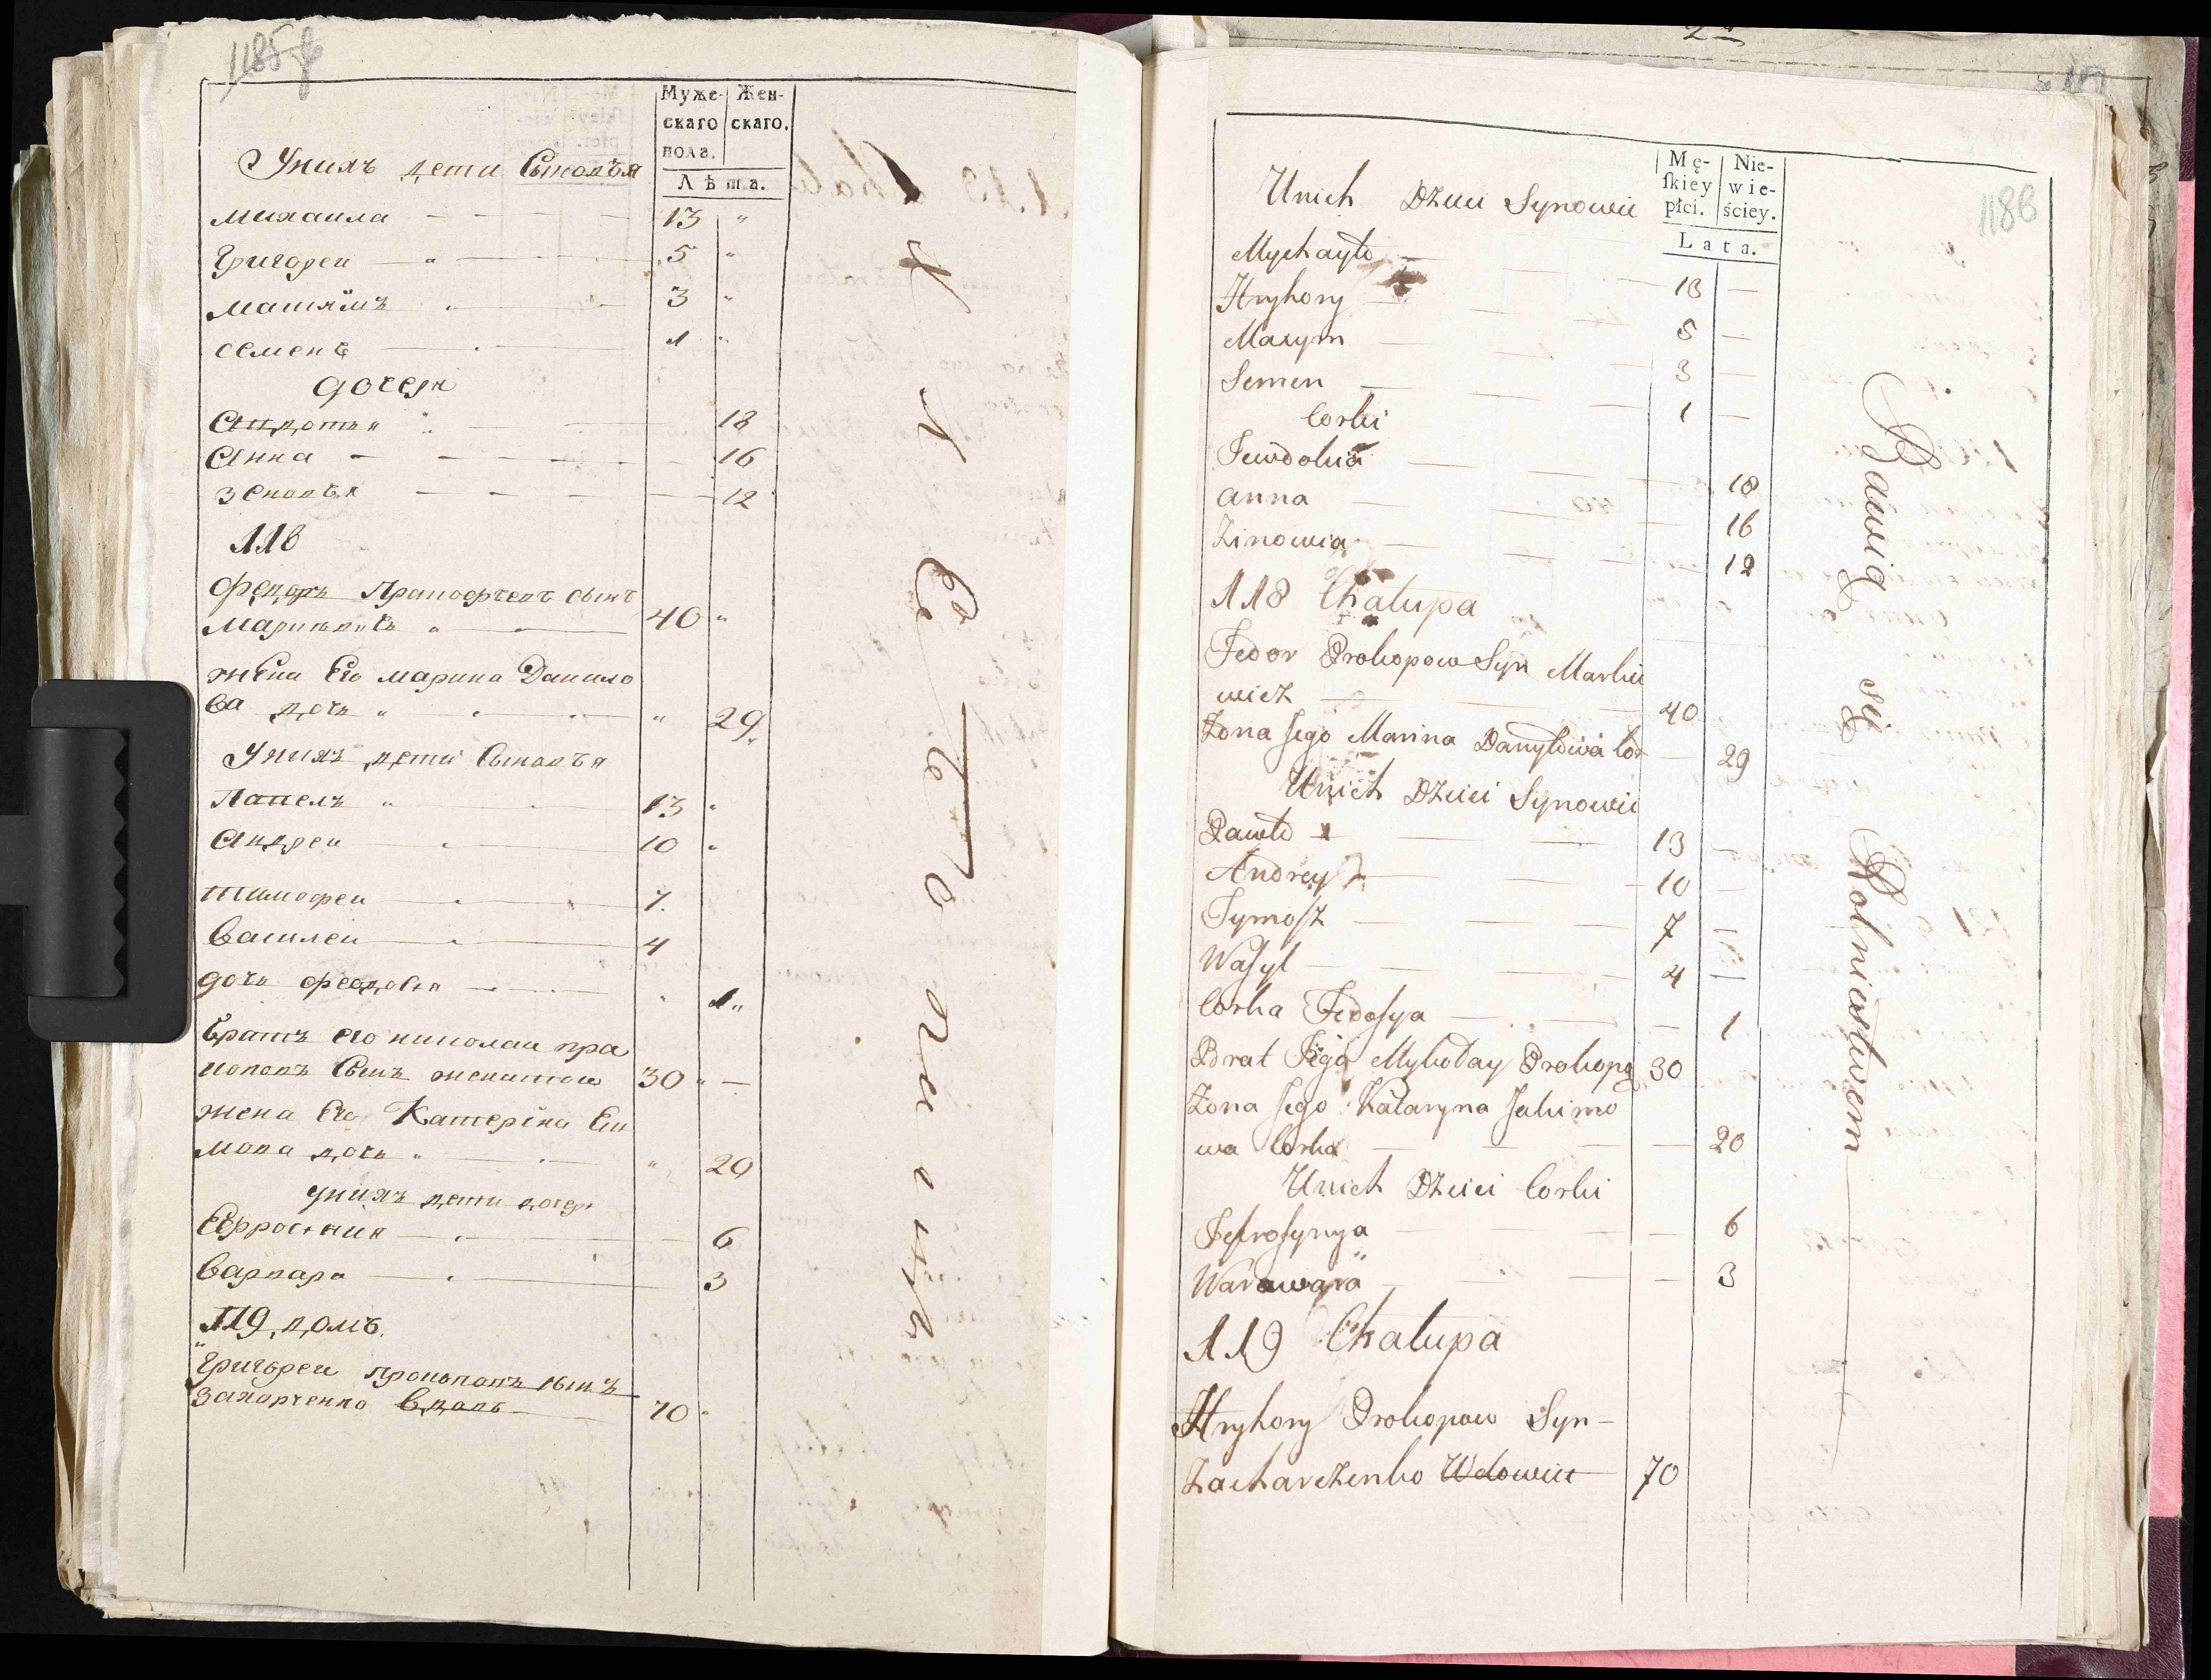 1185
Муже-
скаго
пола.
Жен-
скаго.
Лѣта.
Унихъ дети Сыновья
михаила 13 "
Григореи " 5 "
3 "
семенъ 1 "
дочери
18
Анна 16
Зеновья 12
118
Прокофьевъ сынъ
40 "
жена Его марина Данило
ва дочь " " 29
Унихъ дети Сыновья
Павелъ " 13 "
Андреи 10 "
тимофеи 7
василеи 4
дочь феодосия 1
братъ его николаи про
коповъ Сынъ женатои 30 "
жена Его Катеріна
мова дочь " " 20
унихъ дети дочери
Ефросиния 6
варвара 3
119 домъ
Григореи прокоповъ сынъ
Захарченко вдовъ 70 "
1186
Mę-
ſkiey
płci.
Nie-
wie-
ściey.
Lata.
Unich Dzieci Synowie
Mychayło 13 —
Hryhory 5 —
Maxym 3 —
Semen 1 —
Corki
18
Anna 16
Zinowia 12
118 Chalupa
Fedor Prokopow Syn Marki
wicz 40
Zona Jego Marina Danyłowa Cor 29
Unich Dzieci Synowie
Pawło 13 —
Andrey 10 —
Tymoſz 7 —
Waſyl 4 —
Corka Fedoſya — 1
Brat Jego Mykołay Prokopo 30
Zona Jego Kataryna Jakimo
wa Corka — 20
Unich Dzieci Corki
Jefroſynya — 6
Warwara — 3
119 Chalupa
Hryhory Prokopow Syn
Zacharczenko Wdowiec 70
Bawią się Rolnictwem